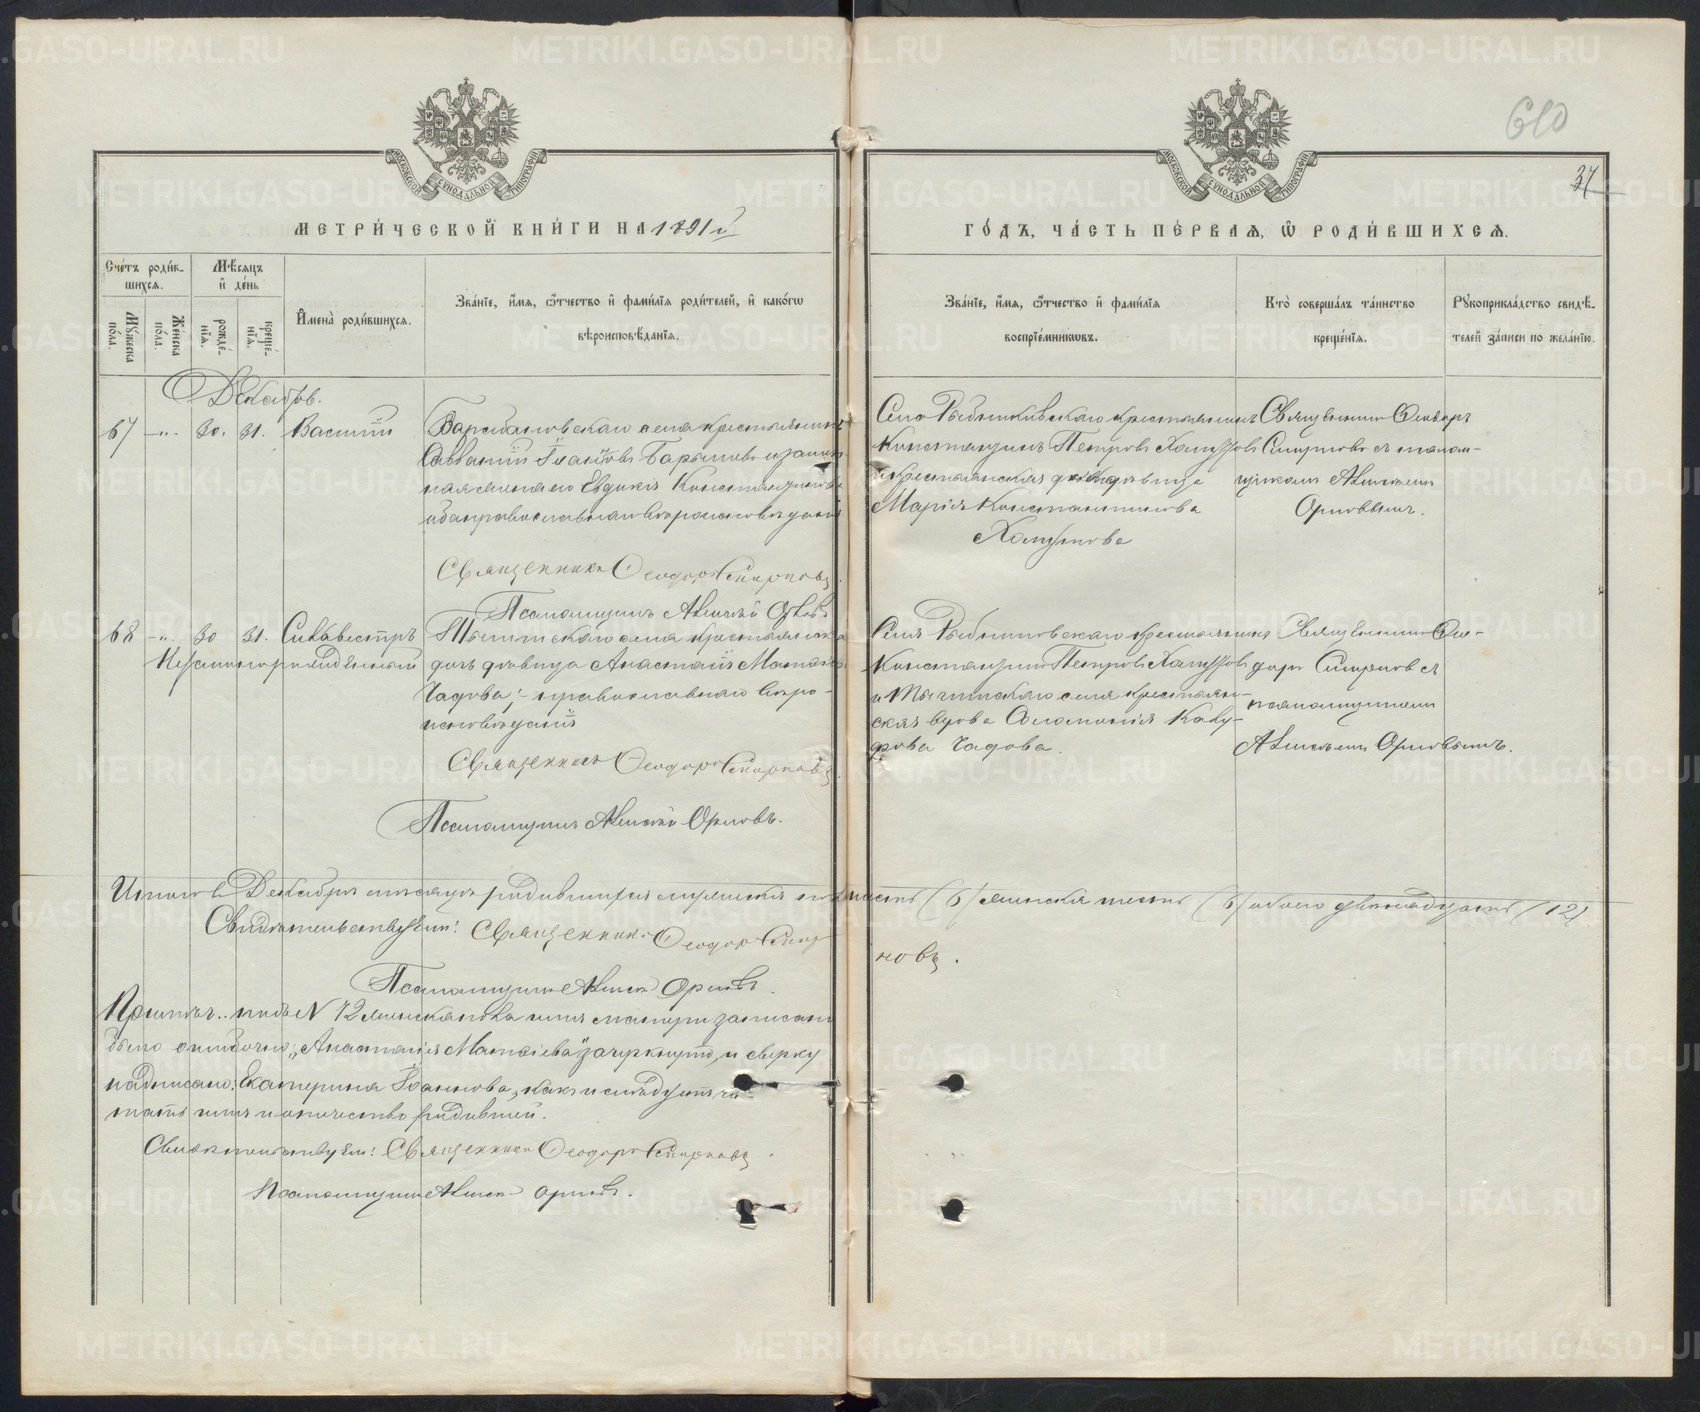 МЕТРИ́ЧЕСКОЙ КНИ́ГИ НА 1891 й
ГО́ДЪ, ЧА́СТЬ ПЕ́РВАѦ, Ѡ РОДИ́ВШИХСѦ.
610
37
Сче́тъ роди́в-
шихсѧ.
Мѣ́сѧцъ
и҆ де́нь
Му́жеска
по́ла.
Же́нска
по́ла.
рожде́-
нїѧ.
креще́-
нїѧ.
И҆мена̀ роди́вшихсѧ.
Зва́нїе, и҆́мѧ, ѻ҆́тчество и҆ фами́лїѧ роди́телей, и҆ како́гѡ
вѣроисповѣ́данїѧ.
Зва́нїе, и҆́мѧ, ѻ҆́тчество и҆ фами́лїѧ
воспрїе́мникѡвъ.
Кто̀ соверша́лъ та́инство
креще́нїѧ.
Рукоприкла́дство свидѣ́-
телей за́писи по жела́нїю.
Декабрь.
67 -"- 30. 31. Василій
села крестьянинъ
Савватій Іоанновъ Барышевъ и закон
ная жена его Евдокія Константинова
оба православнаго вѣроисповѣданія
Священникъ Ѳеодоръ Смирновъ.
Псаломщикъ Алексѣй Орловъ
Села крестьянинъ
Константинъ Петровъ
и крестьянская дѣвица
Марія Константинова
Священникъ Ѳеодоръ
Смирновъ съ псалом-
щикомъ Алексѣемъ
Орловымъ.
68 -"- 30 31. Сильвестръ
Незаконнорожденный
села крестьянская
дочь дѣвица Анастасія Матѳіева
Чадова; православнаго вѣро-
исповѣданія
Священникъ Ѳеодоръ Смирновъ.
Псаломщикъ Алексѣй Орловъ.
Села крестьянинъ
Константинъ Петровъ
и села крестьян-
ская вдова Соломонія
Чадова.
Священникъ Ѳео-
доръ Смирновъ съ
псаломщикомъ
Алексѣемъ Орловымъ.
Итого въ Декабрѣ мѣсяцѣ родившихся мужеска пола шесть (6) женска шесть (6) обоего двѣнадцать (12)
Свидѣтельствуемъ: Священникъ Ѳеодоръ Смир
новъ.
Псаломщикъ Алексѣй Орловъ.
Примѣч.. подъ N 72 женска пола имя матери записано
было ошибочно: „Анастасія Матѳіева" зачеркнуто, и сверху
надписано: Екатерина Іоаннова, какъ и слѣдуетъ чи-
тать имя и отчество родившей.
Свидѣтельствуемъ: Священникъ Ѳеодоръ Смирновъ.
Псаломщикъ Алексѣй Орловъ.
METRIKI.GASO-URAL.RU